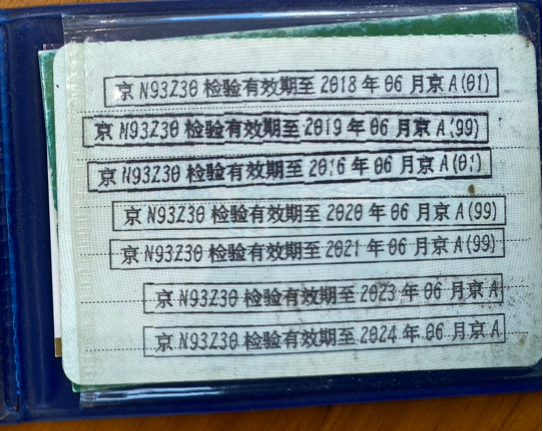 京N93Z30检验有效期至2018年06月京A(01)
京N93Z30检验有效期至2019年06月京A(99)
京N93Z30检验有效期至2016年06月京A(01)
京N93Z30检验有效期至2020年06月京A(99)
京N93Z30检验有效期至2021年06月京A(99)
京N93Z30检验有效期至2023年06月京A
京N93Z30检验有效期至2024年06月京A